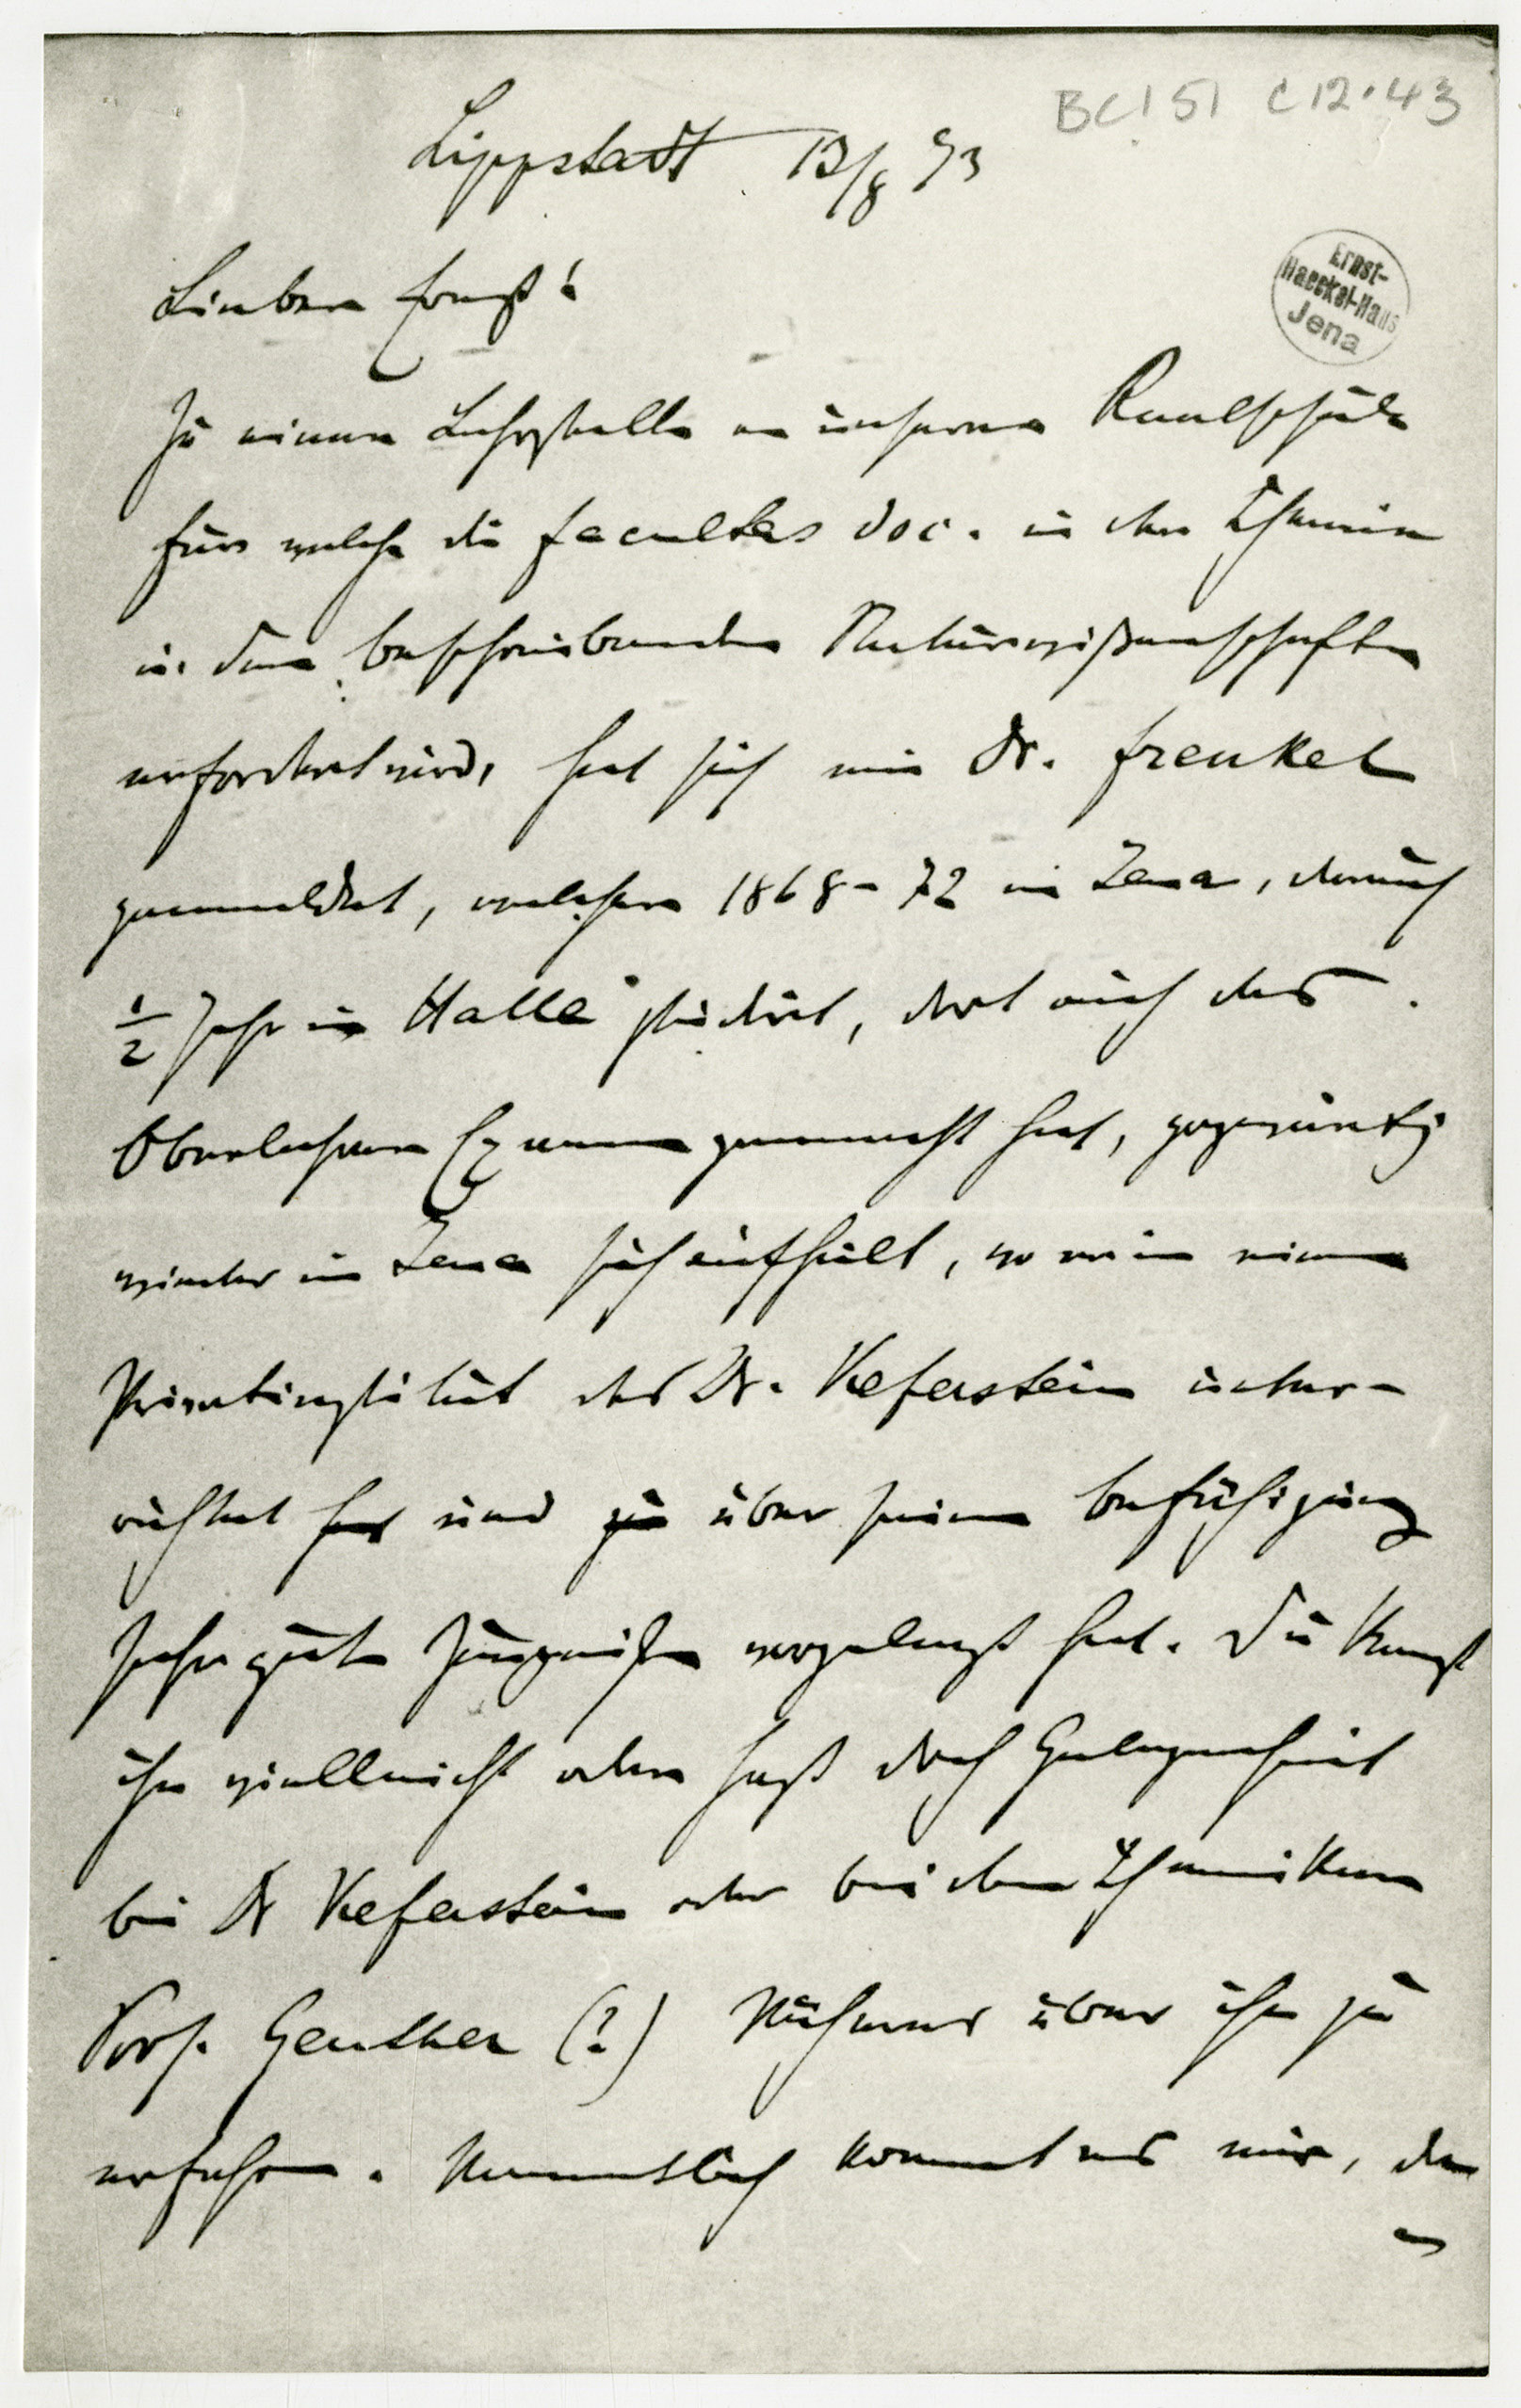 BC 151 C 12.43
Lippstadt 13/8 73
Ernst-
Haeckel-Haus
Jena
Lieber Ernst!
Zu einer Lehrstelle an unserer Realschule
für welche die facultas doc. in der Chemie
u. den beschreibenden Naturwißenschaften
erfordert wird, hat sich ein Dr. Frenkel
gemeldet, welcher 1868-72 in Jena, darauf
1/2 Jahr in Halle studirt, dort auch das
Oberlehrer Examen gemacht hat, gegenwärtig
wieder in Jena sich aufhält, wo er in einem
Privatinstitut des Dr. Keferstein unter-
richtet hat und zu über seine Befähigung
sehr gute Zeugniße vorgelegt hat. Du kennst
ihn vielleicht oder hast doch Gelegenheit
bei Dr Keferstein oder bei dem Chemiker
Prof. Geuther (?) Näheres über ihn zu
erfahren. Namentlich kommt es mir, da